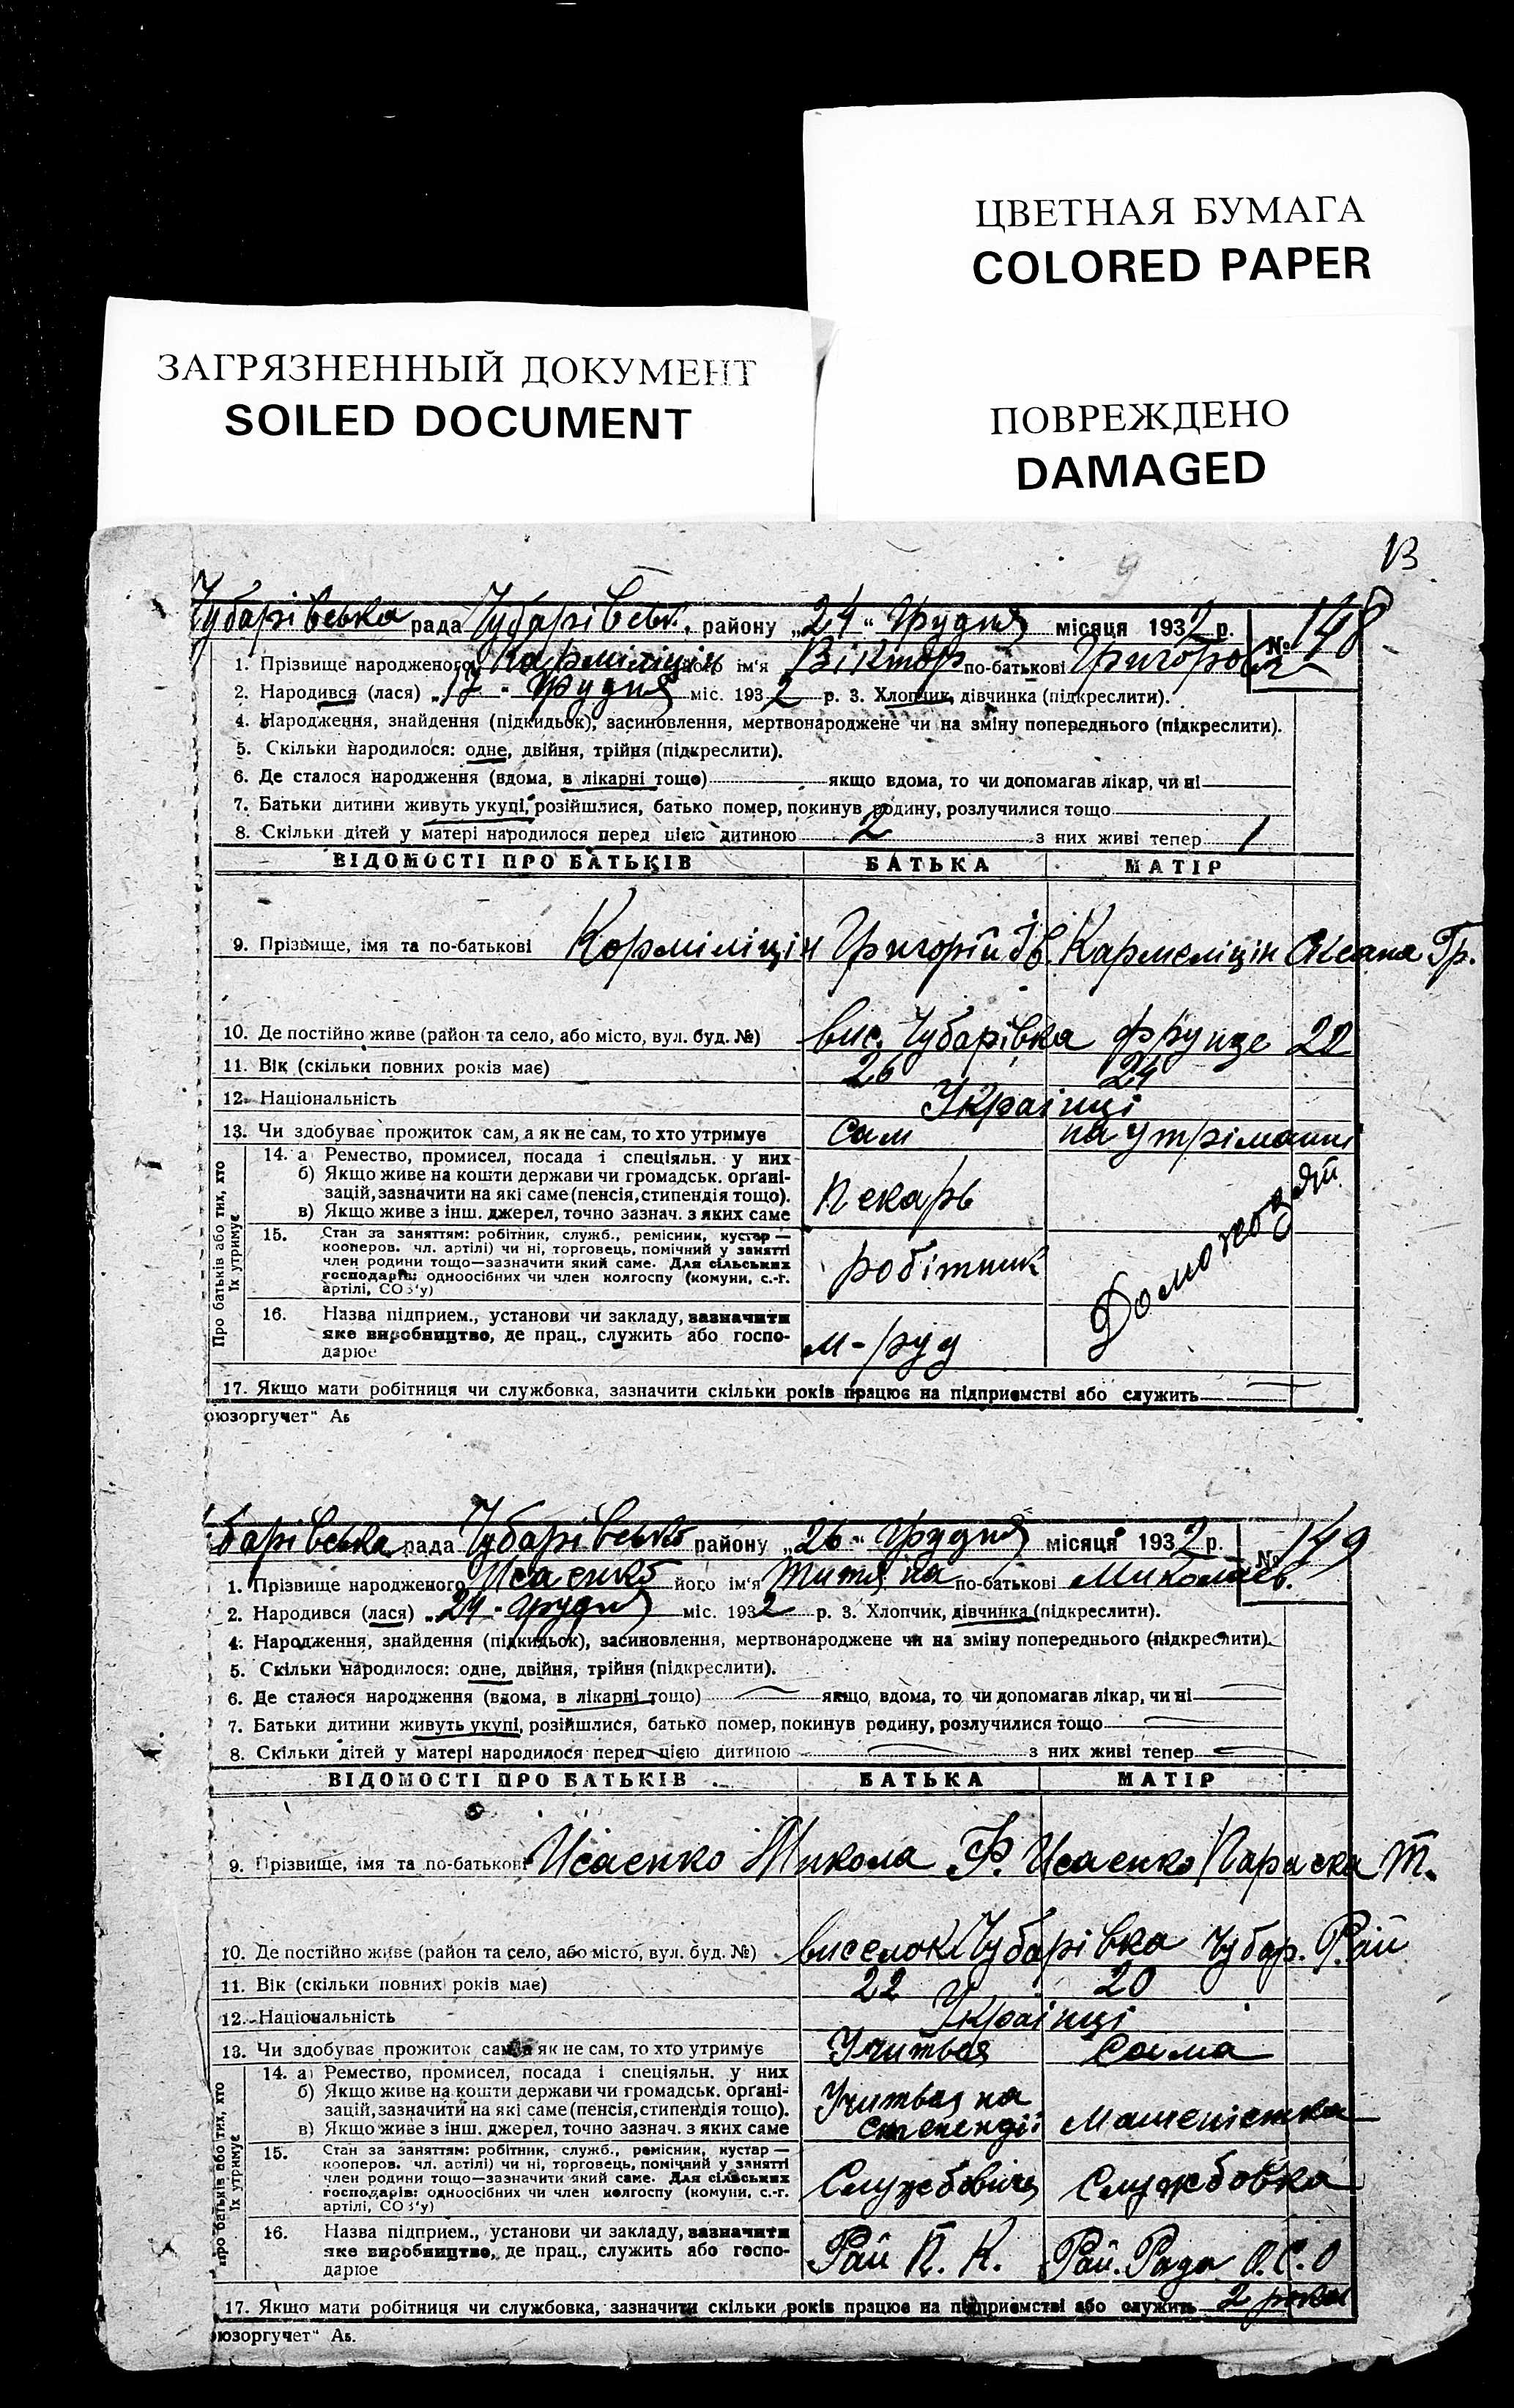 ЦВЕТНАЯ БУМАГА
COLORED PAPER
ЗАГРЯЗНЕННЫЙ ДОКУМЕНТ
SOILED DOCUMENT
ПОВРЕЖДЕНО
DAMAGED
13
Чубарівська рада Чубарівськ. району „24“ Грудня місяця 1932 р. № 148
1. Прізвище народженого Карміліцін його ім'я Віктор по-батькові Григоров
2. Народився (лася) „17“ Грудня міс. 1932 р. 3. Хлопчик, дівчинка (підкреслити).
4. Народження, знайдення (підкидьок), засиновлення, мертвонароджене чи на зміну попереднього (підкреслити).
5. Скільки народилося: одне, двійня, трійня (підкреслити).
6. Де сталося народження (вдома, в лікарні тощо) якщо вдома, то чи допомагав лікар, чи ні
7. Батьки дитини живуть укупі, розійшлися, батько помер, покинув родину, розлучилися тощо
8. Скільки дітей у матері народилося перед цією дитиною 2 з них живі тепер 1
ВІДОМОСТІ ПРО БАТЬКІВ БАТЬКА МАТІР
9. Прізвище, імя та по-батькові Корміліцін Григорій Ів. Кармеліцін Оксана Гр.
10. Де постійно живе (район та село, або місто, вул. буд. №) вис. Чубарівка Фрунзе 22
11. Вік (скільки повних років має) 26 24
12. Національність Українці
13. Чи здобуває прожиток сам, а як не сам, то хто утримує Сам на утріманні
Про батьків або тих, хто їх утримує
14. а) Ремество, промисел, посада і спеціяльн. у них
б) Якщо живе на кошти держави чи громадськ. органі-
зацій, зазначити на які саме (пенсія, стипендія тощо).
в) Якщо живе з інш. джерел, точно зазнач. з яких саме
Пекарь
Домохозяй.
15. Стан за заняттям: робітник, служб., ремісник, кустар —
кооперов. чл. артілі) чи ні, торговець, помічний у занятті
член родини тощо—зазначити який саме. Для сільських
господарів: одноосібних чи член колгоспу (комуни, с.-г.
артілі, СОЗ'у)
робітник
16. Назва підприєм., установи чи закладу, зазначити
яке виробництво, де прац., служить або госпо-
дарює
м-руд
17. Якщо мати робітниця чи службовка, зазначити скільки років працює на підприємстві або служить
оюзоргучет" Аб
барівська рада Чубарівсько району „26“ Грудня місяця 1932 р. № 149
1. Прізвище народженого Исаенко його ім'я Титяна по-батькові Миколаєв.
2. Народився (лася) „24“ Грудня міс. 1932 р. 3. Хлопчик, дівчинка (підкреслити).
4. Народження, знайдення (підкидьок), засиновлення, мертвонароджене чи на зміну попереднього (підкреслити).
5. Скільки народилося: одне, двійня, трійня (підкреслити).
6. Де сталося народження (вдома, в лікарні тощо) якщо, вдома, то чи допомагав лікар, чи ні
7. Батьки дитини живуть укупі, розійшлися, батько помер, покинув родину, розлучилися тощо
8. Скільки дітей у матері народилося перед цією дитиною з них живі тепер
ВІДОМОСТІ ПРО БАТЬКІВ БАТЬКА МАТІР
9. Прізвище, імя та по-батькові Исаенко Микола Ф. Исаенко Параска Т.
10. Де постійно живе (район та село, або місто, вул. буд. №) виселок Чубарівка Чубар. Рай
11. Вік (скільки повних років має) 22 20
12. Національність Українці
13. Чи здобуває прожиток сам, а як не сам, то хто утримує Учиться Сама
Про батьків або тих, хто їх утримує
14. а) Ремество, промисел, посада і спеціяльн. у них
б) Якщо живе на кошти держави чи громадськ. органі-
зацій, зазначити на які саме (пенсія, стипендія тощо).
в) Якщо живе з інш. джерел, точно зазнач. з яких саме
Учиться на
степендії Машеністка
15. Стан за заняттям: робітник, служб., ремісник, кустар —
кооперов. чл. артілі) чи ні, торговець, помічний у занятті
член родини тощо—зазначити який саме. Для сільських
господарів: одноосібних чи член колгоспу (комуни, с.-г.
артілі, СОЗ'у)
Службовець Службовка
16. Назва підприєм., установи чи закладу, зазначити
яке виробництво, де прац., служить або госпо-
дарює
Рай П. К. Рай. Рада О.С.О
17. Якщо мати робітниця чи службовка, зазначити скільки років працює на підприємстві або служить 2 роки
оюзоргучет" Аб.